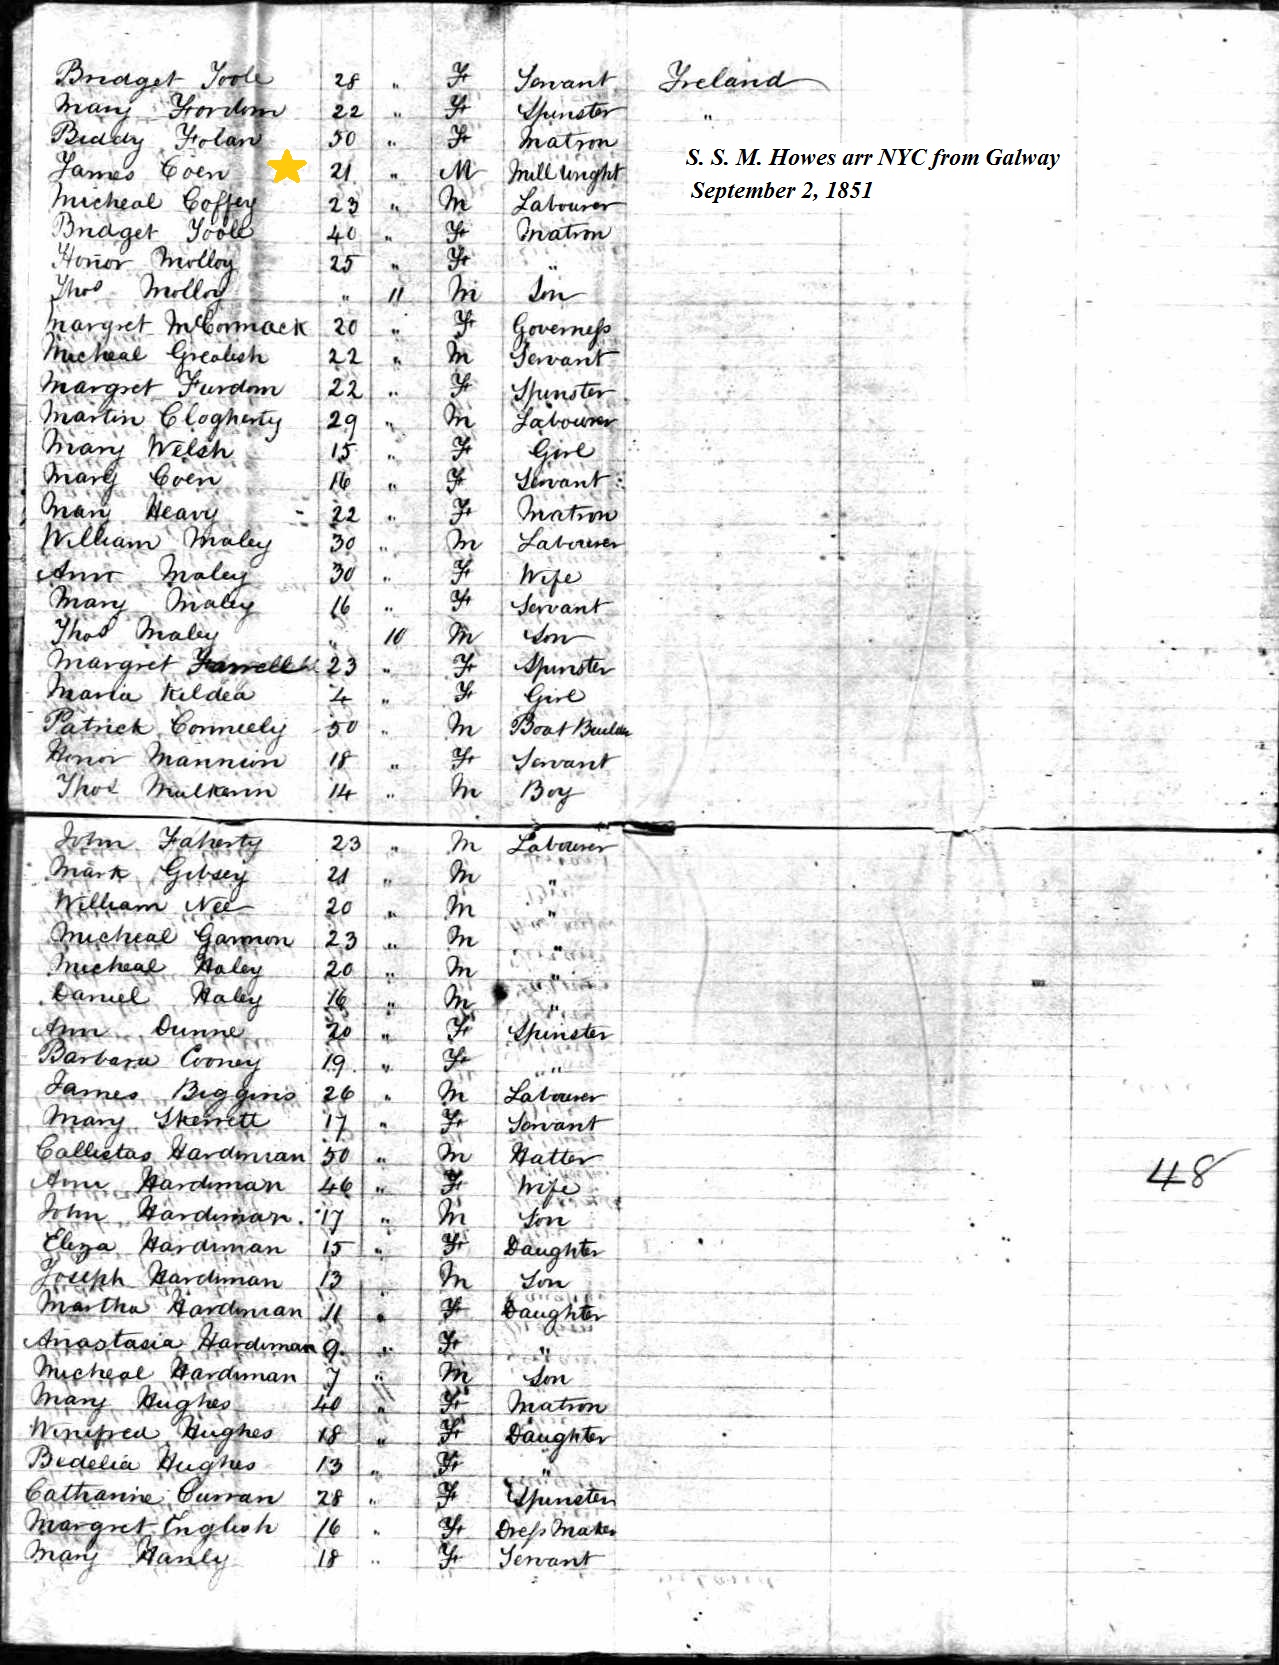 Bridget Toole 28 " F Servant Ireland
Mary Fordom 22 " F Spinster "
Biddy Folan 50 " F Matron
James Coen 21 " M Mill Wright
S. S. M. Howes arr NYC from Galway
September 2, 1851
Micheal Coffey 23 " M Labourer
Bridget Toole 40 " F Matron
Honor Molloy 25 " F "
Thos Molloy " 11 M Son
Margret McCormack 20 " F Governess
Micheal Grealish 22 " M Servant
Margret Furdom 22 " F Spinster
Martin Clogherty 29 " M Labourer
Mary Welsh 15 " F Girl
Mary Coen 16 " F Servant
Mary Heavy 22 " F Matron
William Maley 30 " M Labourer
Ann Maley 30 " F Wife
Mary Maley 16 " F Servant
Thos Maley " 10 M Son
Margret Farrell 23 " F Spinster
Maria Kildea 4 " F Girl
Patrick Conneely 50 " M Boat Builder
Honor Mannion 18 " F Servant
Thos Mulkerin 14 " M Boy
John Faherty 23 " M Labourer
Mark Gibsey 21 " M "
William Nee 20 " M "
Micheal Gannon 23 " M "
Micheal Haley 20 " M "
Daniel Haley 16 " M "
Ann Dunne 20 " F Spinster
Barbara Cooney 19 " F "
James Biggins 26 " M Labourer
Mary Skerrett 17 " F Servant
Callistas Hardiman 50 " M Hatter
Ann Hardiman 46 " F Wife 48
John Hardiman 17 " M Son
Eliza Hardiman 15 " F Daughter
Joseph Hardiman 13 M Son
Martha Hardiman 11 " F Daughter
Anastasia Hardiman 9 " F "
Micheal Hardiman 7 " M Son
Mary Hughes 40 " F Matron
Winifred Hughes 18 " F Daughter
Bedelia Hughes 13 " F "
Catharine Curran 28 " F Spinster
Margret English 16 " F Dress Maker
Mary Hanly 18 " F Servant